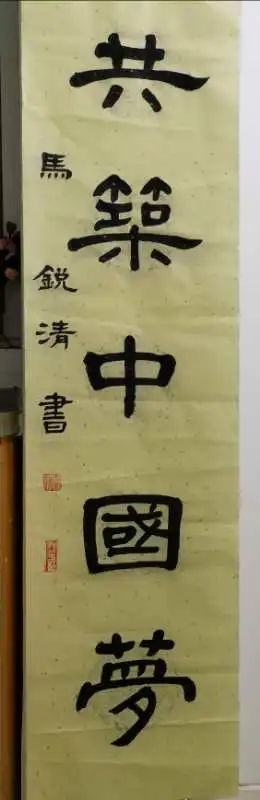 共築中國夢
馬銳清書